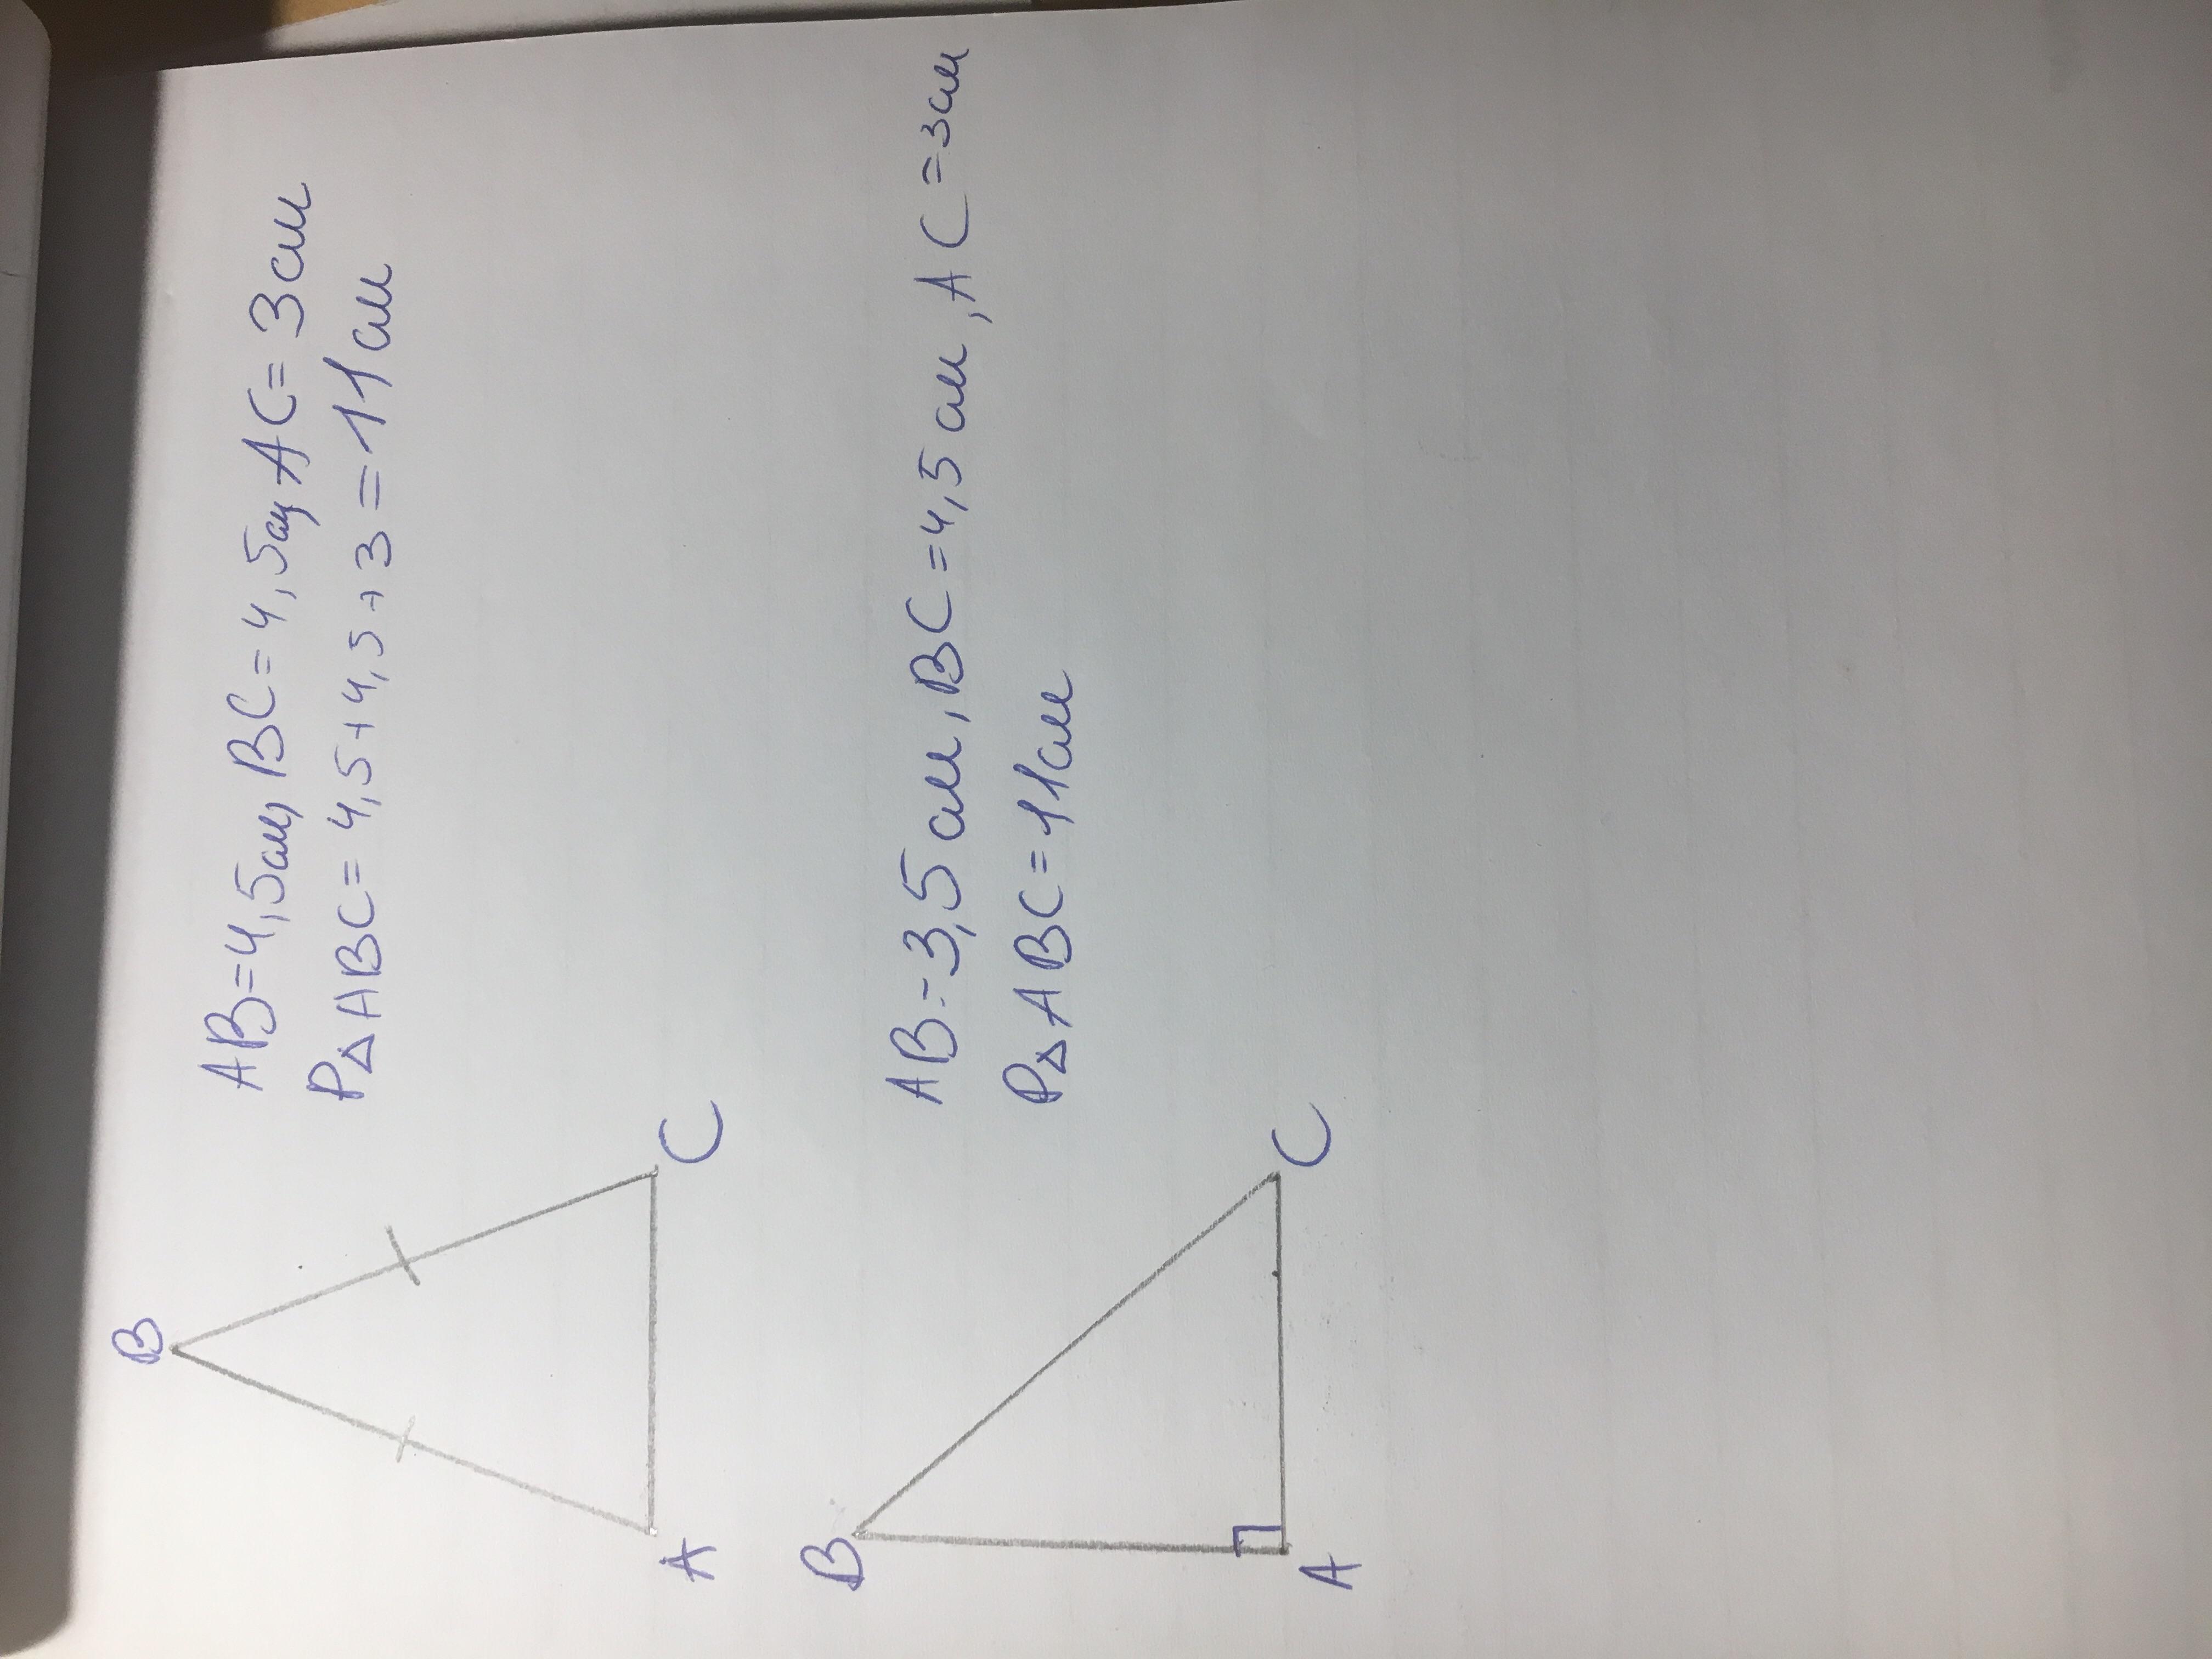 B
AB=4,5см, BC=4,5см, AC=3см
P△ABC=4,5+4,5+3=11см
A C
B
AB=3,5см, BC=4,5см, AC=3см
P△ABC=11см
A C